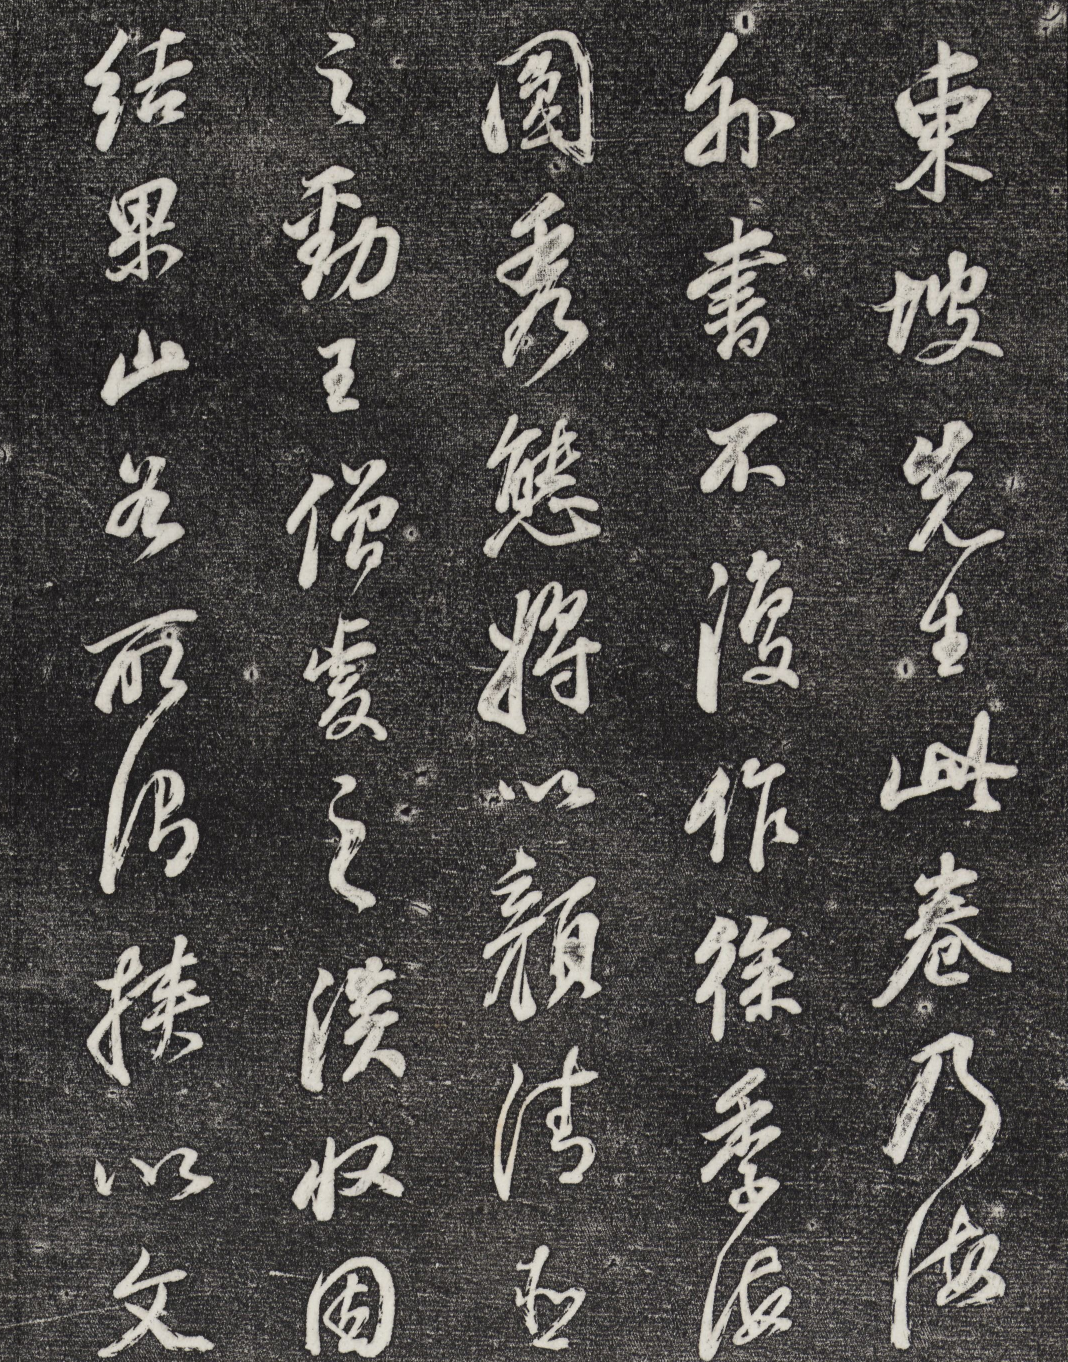 東坡先生此卷乃海
外書不復作徐季海
圓秀態將以顏清臣
之勁王僧虔之淡收因
結果山谷所謂挾以文